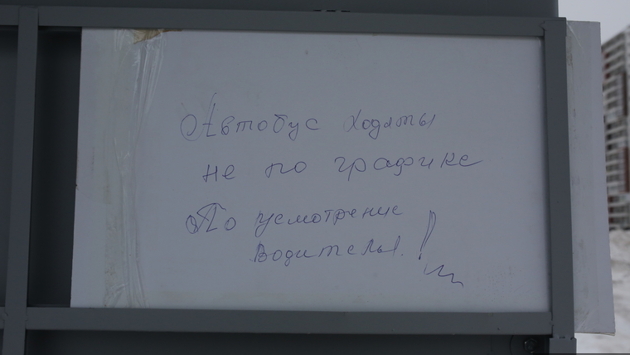 Автобус ходяты
не по графике
По усмотрение
водителы.!